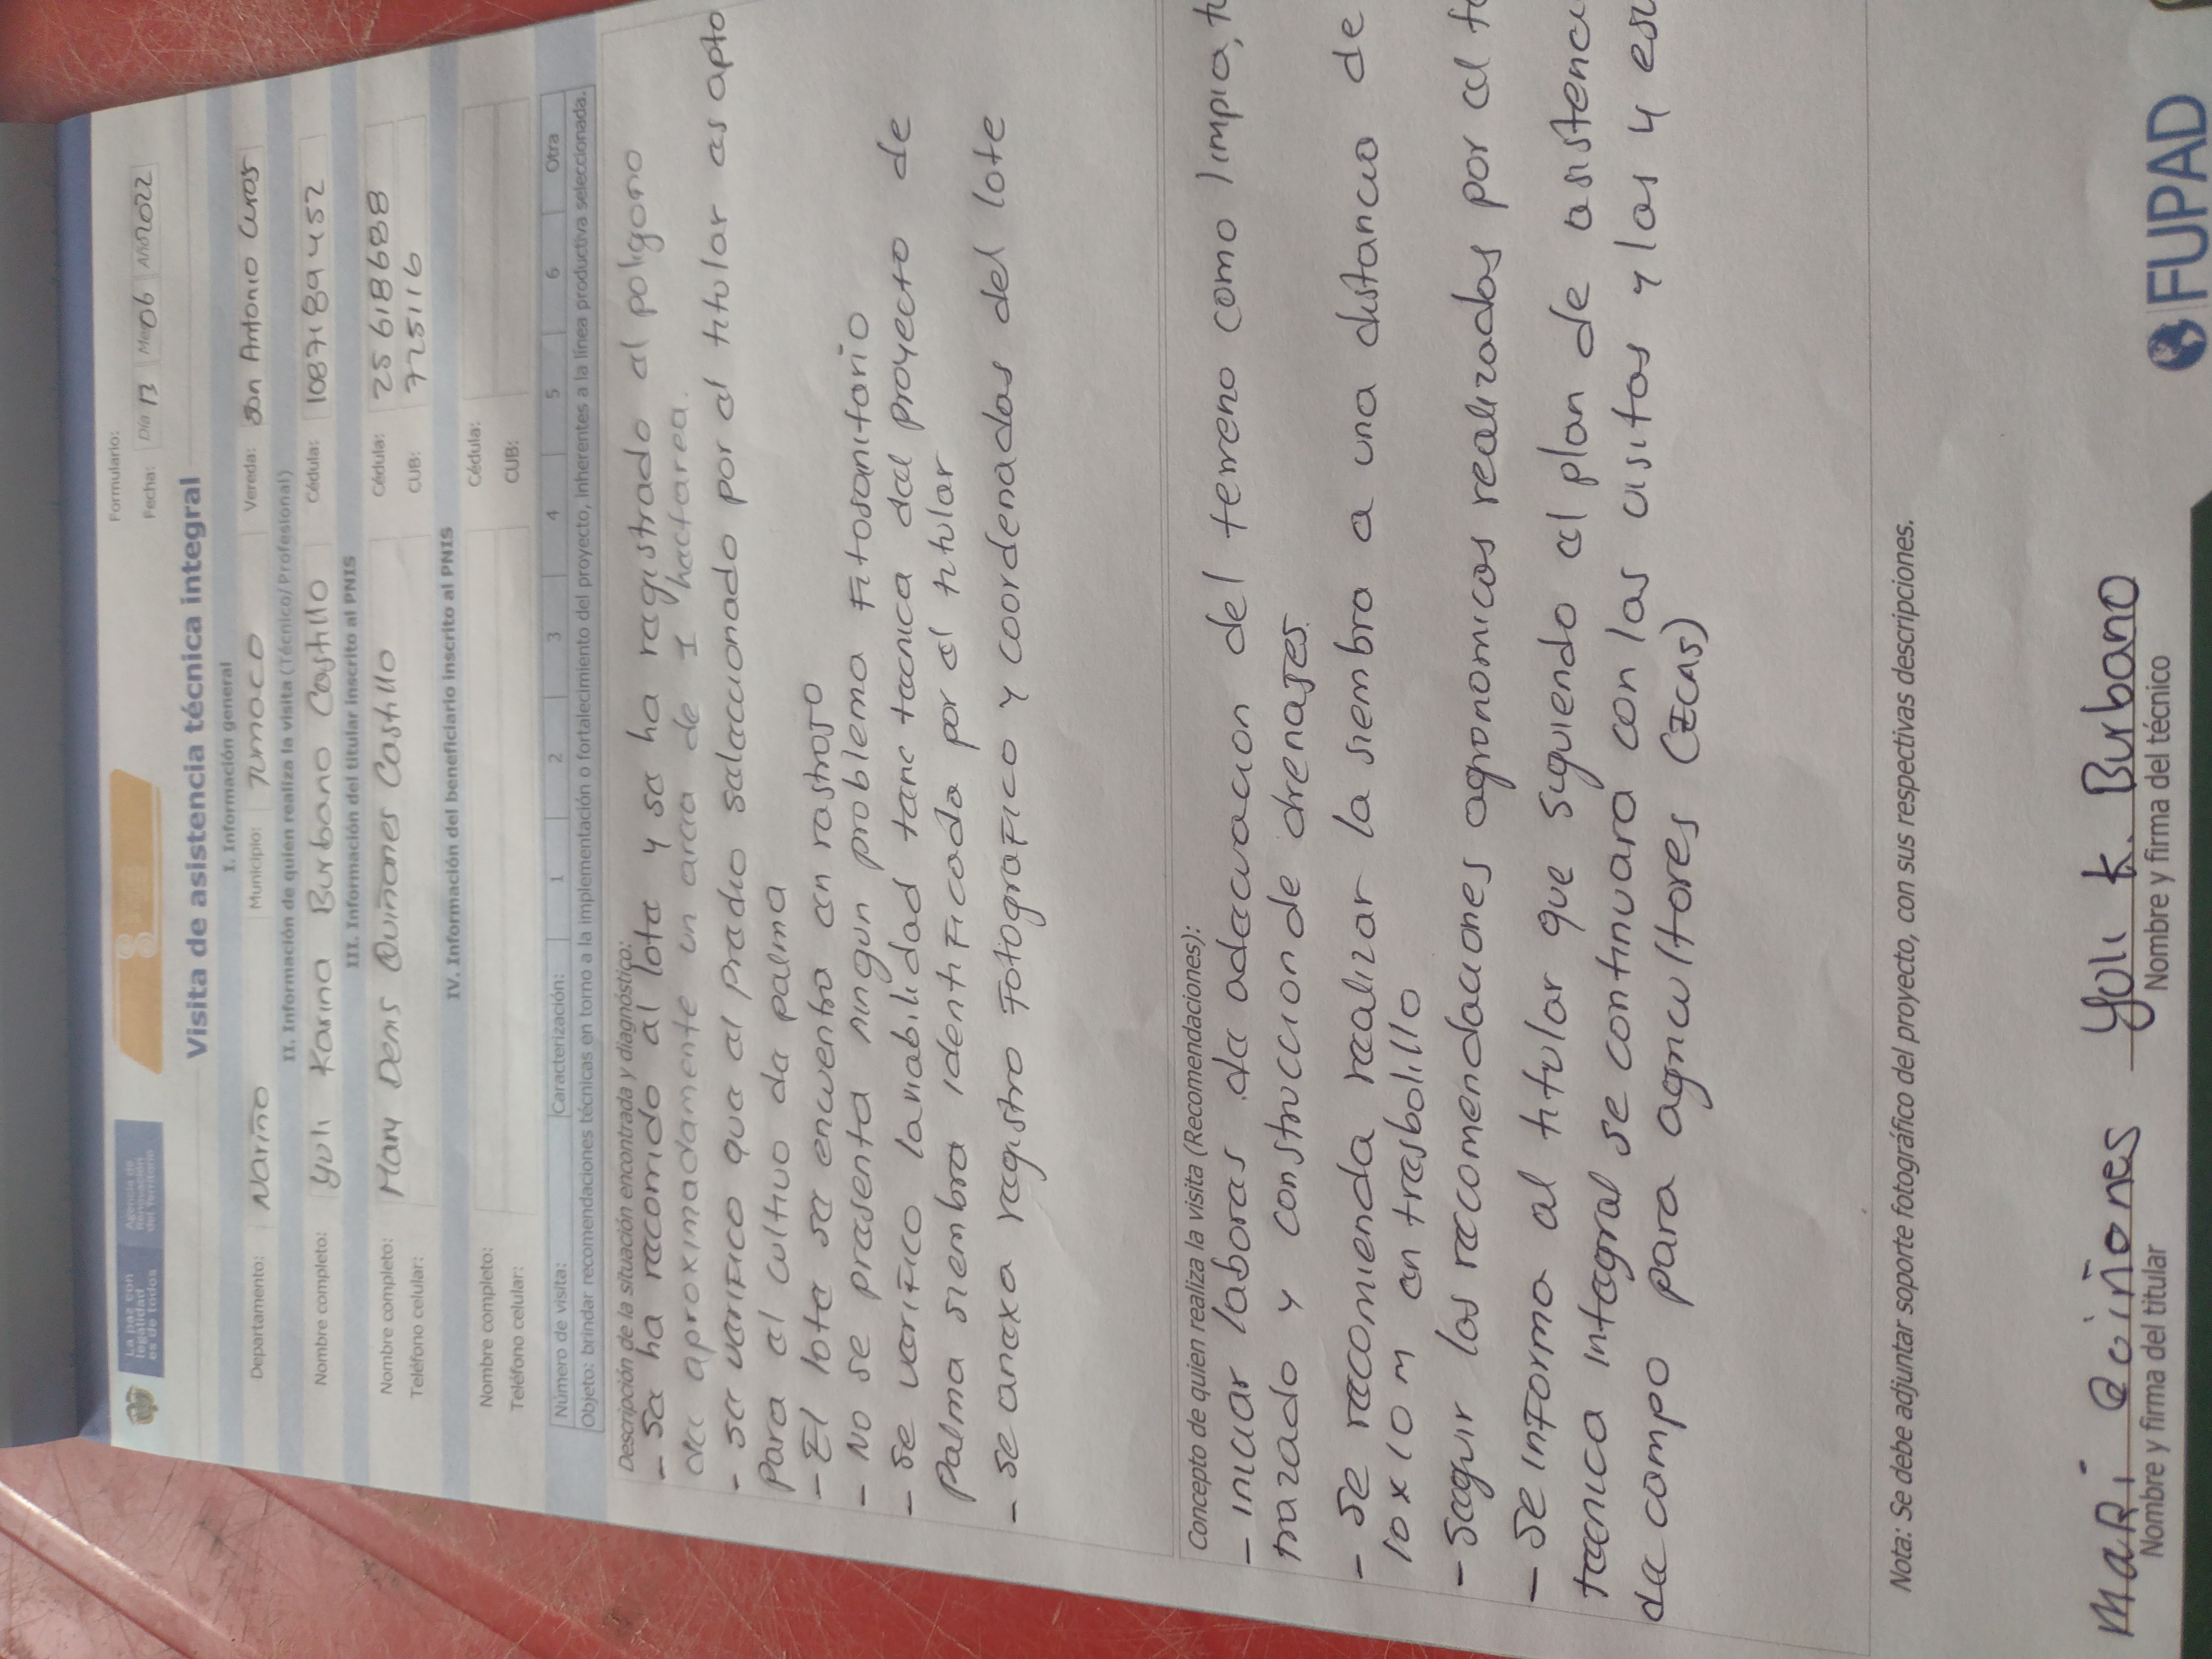 La paz con legalidad es de todos
Agencia de Renovación del Territorio
Formulario:
Fecha: Día 13 Mes 06 Año 2022
Visita de asistencia técnica integral
I. Información general
Departamento: Nariño Municipio: Tumaco Vereda: San Antonio Curay
II. Información de quien realiza la visita (Técnico/Profesional)
Nombre completo: Yoli Karina Burbano Castillo Cédula: 1087189452
III. Información del titular inscrito al PNIS
Nombre completo: Mary Denis Quiñones Castillo Cédula: 25618688
Teléfono celular: CUB: 7725116
IV. Información del beneficiario inscrito al PNIS
Nombre completo: Cédula:
Teléfono celular: CUB:
Número de visita: Caracterización: 1 2 3 4 5 6 Otra
Objeto: brindar recomendaciones técnicas en torno a la implementación o fortalecimiento del proyecto, inherentes a la línea productiva seleccionada.
Descripción de la situación encontrada y diagnóstico:
- Se ha recorrido el lote y se ha registrado el poligono
de aproximadamente un area de 1 hectarea.
- se verifico que el predio seleccionado por el titular es apto
Para el cultivo de palma
- El lote se encuentra en rastrojo
- No se presenta ningun problema Fitosanitario
- Se verifico la viabilidad tecnica del proyecto de
Palma siembra identificada por el titular
- se anexa registro Fotografico y coordenadas del lote
Concepto de quien realiza la visita (Recomendaciones):
- iniciar labores de adecuacion del terreno como limpia,
trazado y construccion de drenajes
- Se recomienda realizar la siembra a una distancia de
10 x 10 m en tresbolillo
- Seguir las recomendaciones agronomicas realizadas por el
- Se informa al titular que siguiendo el plan de asistencia
tecnica integral se continuara con las visitas y las 4
de campo para agricultores (ECAS)
Nota: Se debe adjuntar soporte fotográfico del proyecto, con sus respectivas descripciones.
MARi Qoiñones Yoli K. Burbano
Nombre y firma del titular Nombre y firma del técnico
FUPAD